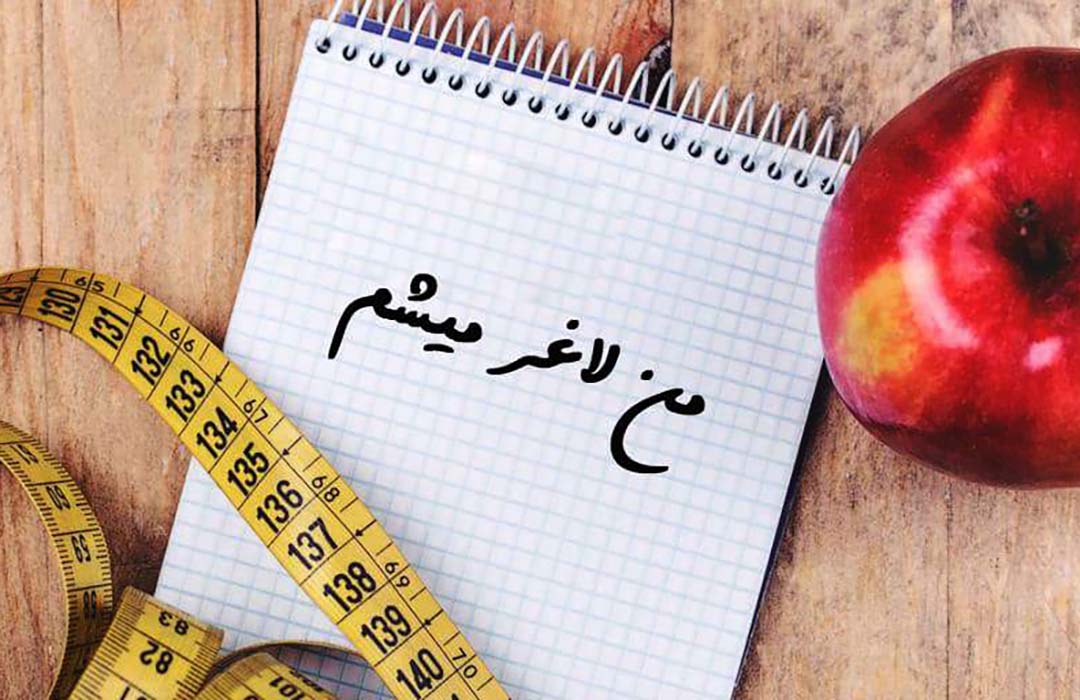 من لاغر میشم
130
131
132
133
134
135
136
137
138
139
140
65
66
67
68
69
70
59
83
82
101